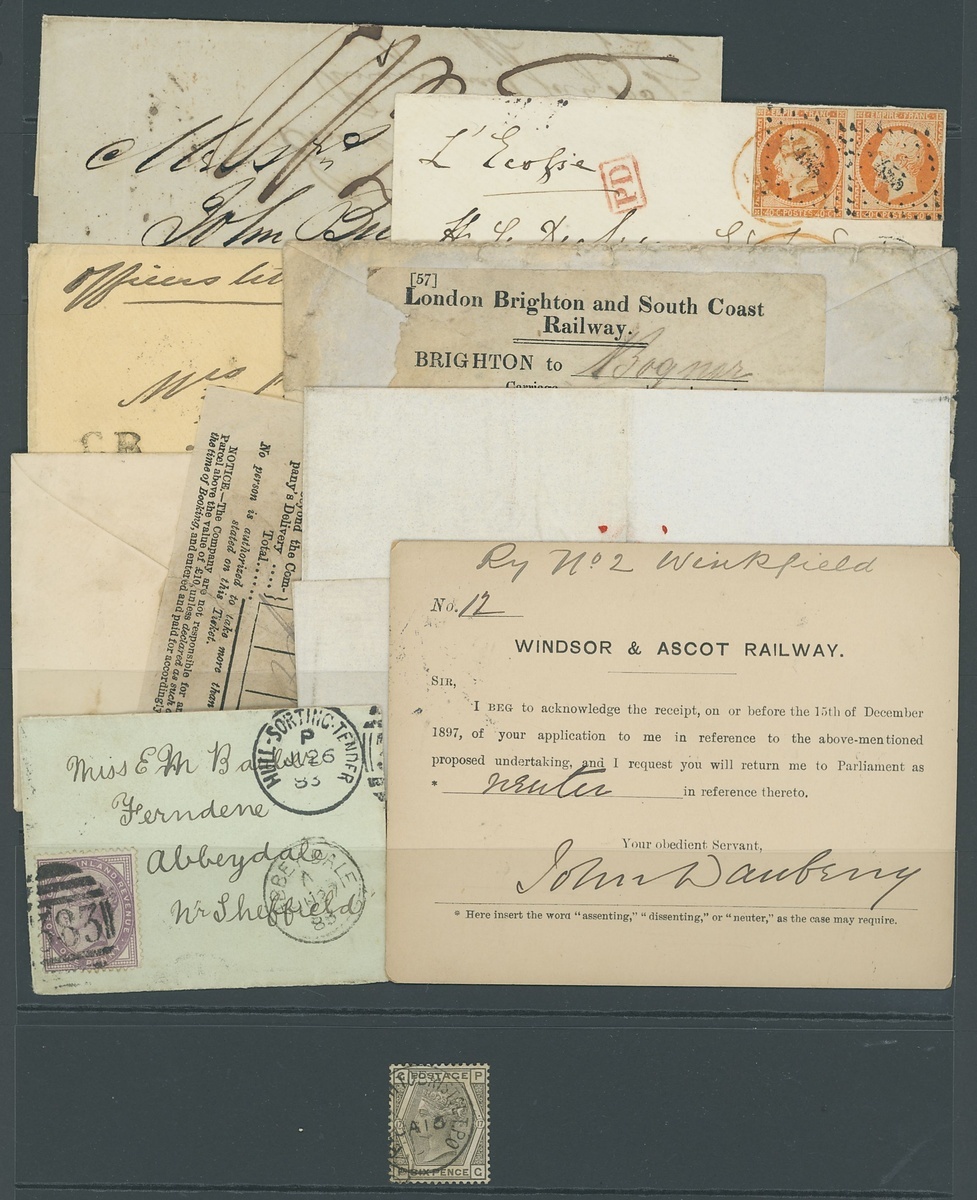 Messrs
John
L'Ecosse
PD
EMPIRE FRANC
EMPIRE FRANC
40 C POSTES 40 C
40 C POSTES 40 C
Officers
Mrs
[57]
London Brighton and South Coast
Railway.
BRIGHTON to Bognor
Carriage
beyond the Com-
pany's Delivery
Total
No person is authorized to take more than
stated on this Ticket.
NOTICE.—The Company are not responsible for an
Parcel above the value of £10, unless declared as such
the time of Booking, and entered and paid for according
Ry No 2 Winkfield
No. 12
WINDSOR & ASCOT RAILWAY.
SIR,
I BEG to acknowledge the receipt, on or before the 15th of December
1897, of your application to me in reference to the above-mentioned
proposed undertaking, and I request you will return me to Parliament as
* neuter in reference thereto.
Your obedient Servant,
John Danberry
* Here insert the word "assenting," "dissenting," or "neuter," as the case may require.
HILL-SORTING-TENDER
P
26
83
Miss E M
Ferndene
Abbeydale
Nr Sheffield
383
INLAND REVENUE
A
27
83
POSTAGE
P
SIX PENCE
G